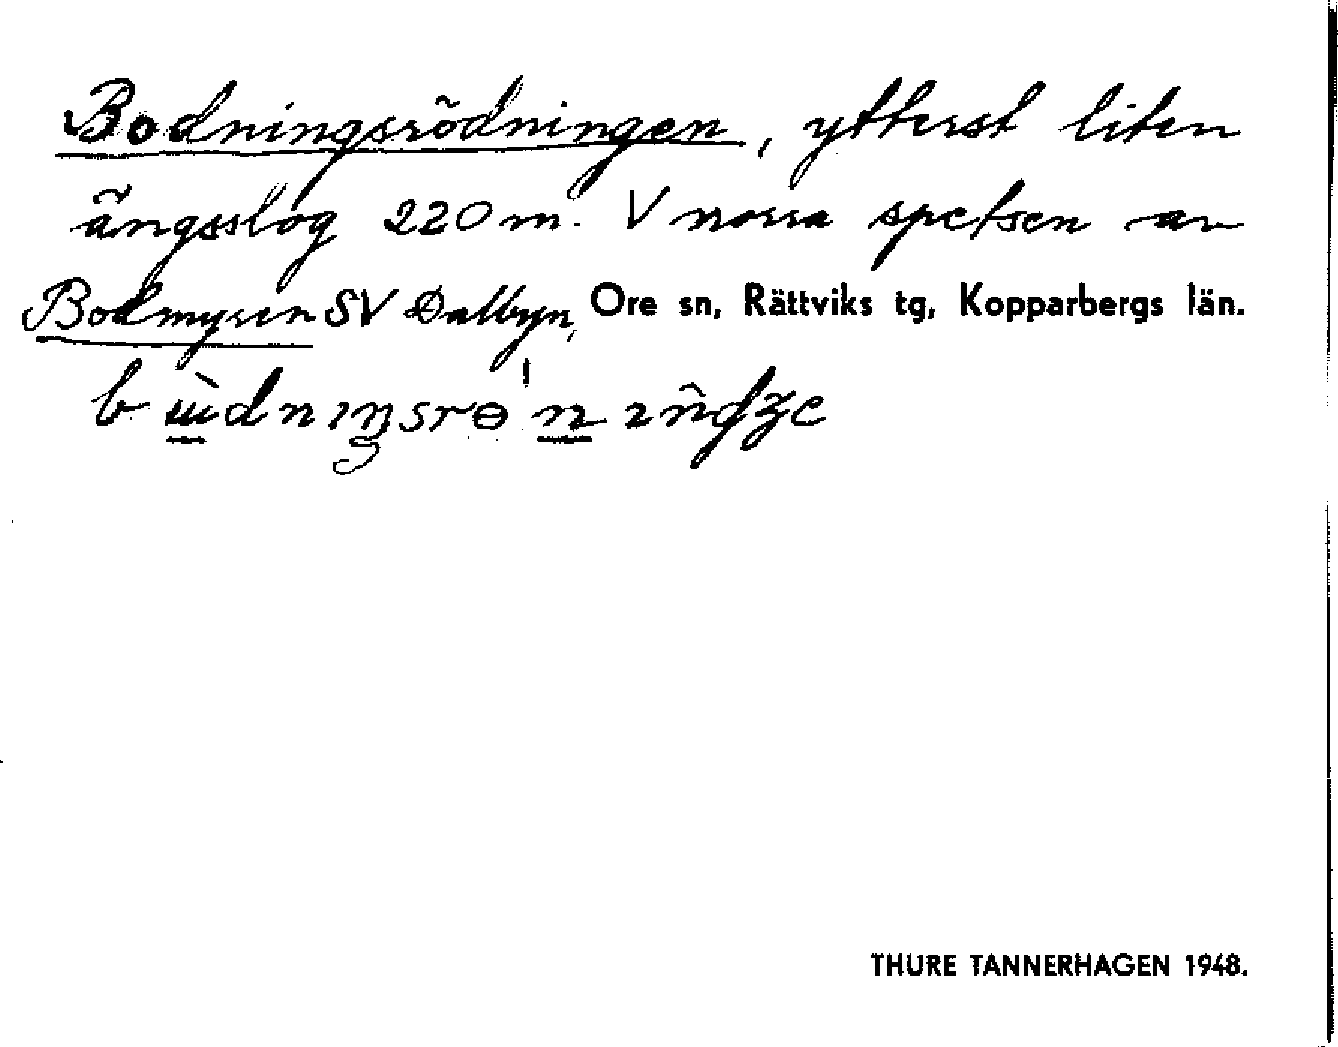 Bodningsrödningen, ytterst liten
ängsslog 220 m. V norra spetsen av
Bodmyren SV Dalbyn, Ore sn, Rättviks tg, Kopparbergs län.
THURE TANNERHAGEN 1948.